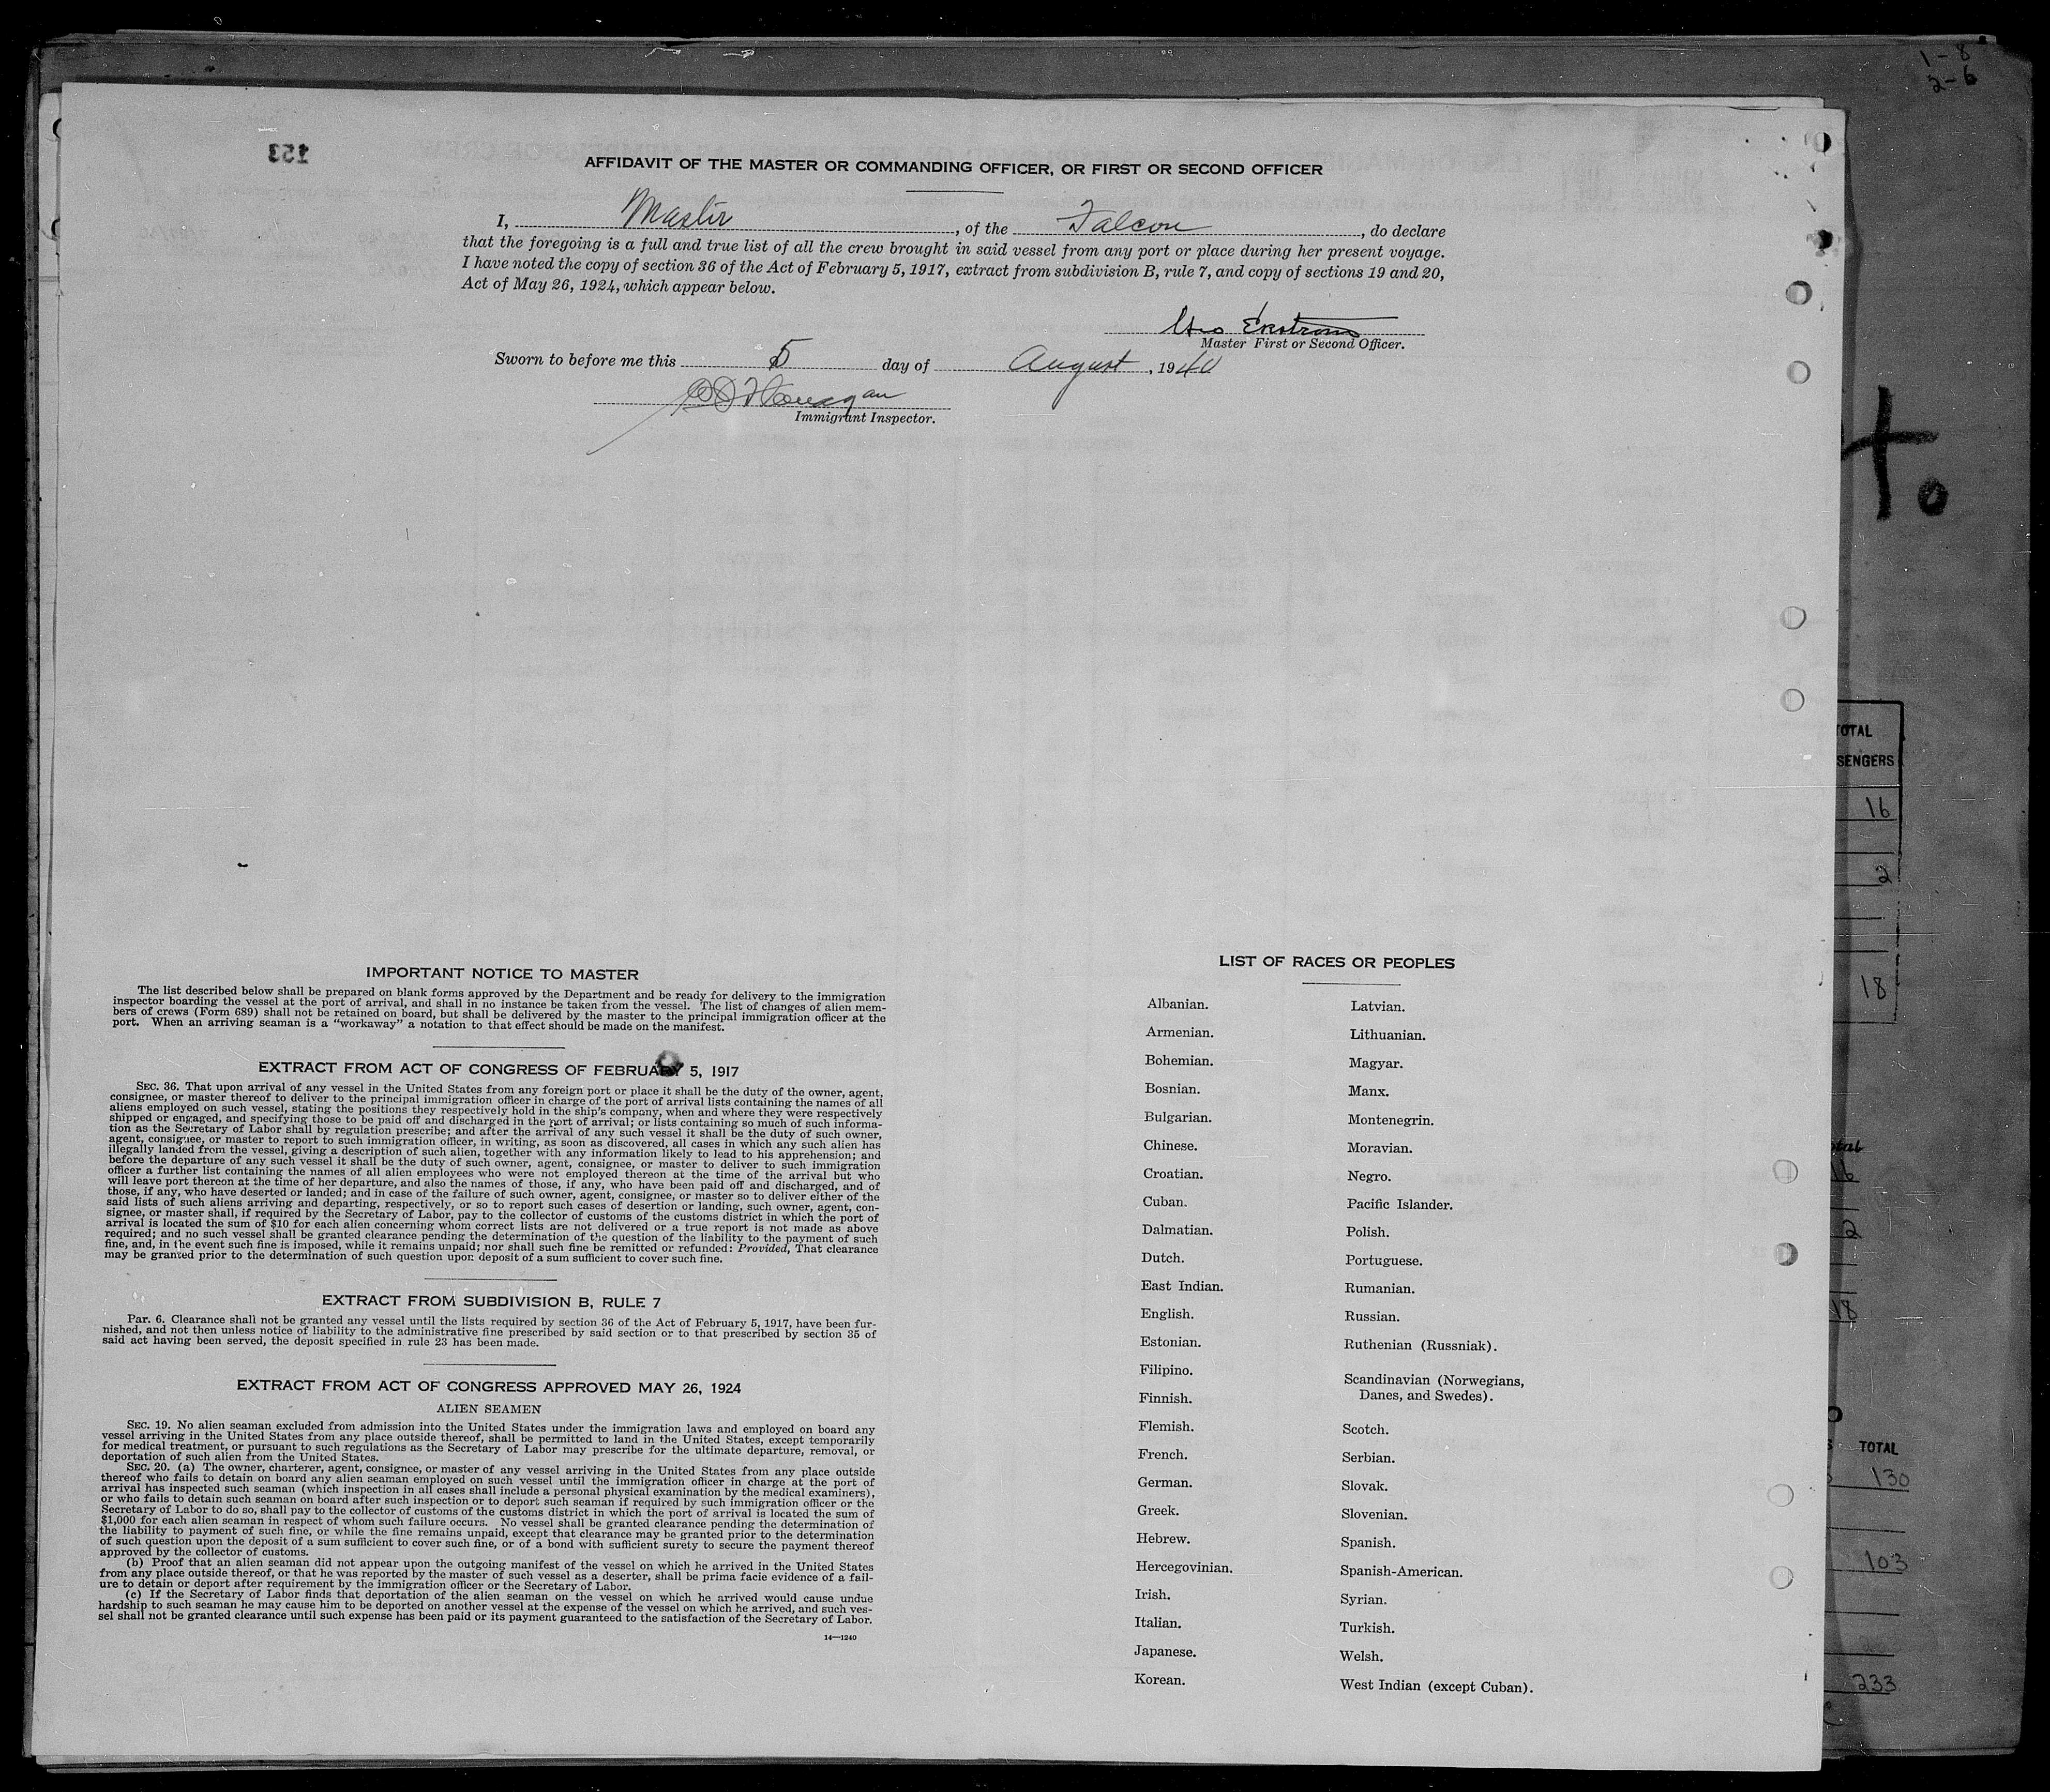 1-8
2-6
153
AFFIDAVIT OF THE MASTER OR COMMANDING OFFICER, OR FIRST OR SECOND OFFICER
I, Master, of the Falcon, do declare
that the foregoing is a full and true list of all the crew brought in said vessel from any port or place during her present voyage.
I have noted the copy of section 36 of the Act of February 5, 1917, extract from subdivision B, rule 7, and copy of sections 19 and 20,
Act of May 26, 1924, which appear below.
Ekstrom
Master First or Second Officer.
Sworn to before me this 5 day of August, 1940
Flanagan
Immigrant Inspector.
IMPORTANT NOTICE TO MASTER
The list described below shall be prepared on blank forms approved by the Department and be ready for delivery to the immigration
inspector boarding the vessel at the port of arrival, and shall in no instance be taken from the vessel. The list of changes of alien mem-
bers of crews (Form 689) shall not be retained on board, but shall be delivered by the master to the principal immigration officer at the
port. When an arriving seaman is a "workaway" a notation to that effect should be made on the manifest.
EXTRACT FROM ACT OF CONGRESS OF FEBRUARY 5, 1917
SEC. 36. That upon arrival of any vessel in the United States from any foreign port or place it shall be the duty of the owner, agent,
consignee, or master thereof to deliver to the principal immigration officer in charge of the port of arrival lists containing the names of all
aliens employed on such vessel, stating the positions they respectively hold in the ship's company, when and where they were respectively
shipped or engaged, and specifying those to be paid off and discharged in the port of arrival; or lists containing so much of such informa-
tion as the Secretary of Labor shall by regulation prescribe; and after the arrival of any such vessel it shall be the duty of such owner,
agent, consignee, or master to report to such immigration officer, in writing, as soon as discovered, all cases in which any such alien has
illegally landed from the vessel, giving a description of such alien, together with any information likely to lead to his apprehension; and
before the departure of any such vessel it shall be the duty of such owner, agent, consignee, or master to deliver to such immigration
officer a further list containing the names of all alien employees who were not employed thereon at the time of the arrival but who
will leave port thereon at the time of her departure, and also the names of those, if any, who have been paid off and discharged, and of
those, if any, who have deserted or landed; and in case of the failure of such owner, agent, consignee, or master so to deliver either of the
said lists of such aliens arriving and departing, respectively, or so to report such cases of desertion or landing, such owner, agent, con-
signee, or master shall, if required by the Secretary of Labor, pay to the collector of customs of the customs district in which the port of
arrival is located the sum of $10 for each alien concerning whom correct lists are not delivered or a true report is not made as above
required; and no such vessel shall be granted clearance pending the determination of the question of the liability to the payment of such
fine, and, in the event such fine is imposed, while it remains unpaid; nor shall such fine be remitted or refunded: Provided, That clearance
may be granted prior to the determination of such question upon deposit of a sum sufficient to cover such fine.
EXTRACT FROM SUBDIVISION B, RULE 7
Par. 6. Clearance shall not be granted any vessel until the lists required by section 36 of the Act of February 5, 1917, have been fur-
nished, and not then unless notice of liability to the administrative fine prescribed by said section or to that prescribed by section 35 of
said act having been served, the deposit specified in rule 23 has been made.
EXTRACT FROM ACT OF CONGRESS APPROVED MAY 26, 1924
ALIEN SEAMEN
SEC. 19. No alien seaman excluded from admission into the United States under the immigration laws and employed on board any
vessel arriving in the United States from any place outside thereof, shall be permitted to land in the United States, except temporarily
for medical treatment, or pursuant to such regulations as the Secretary of Labor may prescribe for the ultimate departure, removal, or
deportation of such alien from the United States.
SEC. 20. (a) The owner, charterer, agent, consignee, or master of any vessel arriving in the United States from any place outside
thereof who fails to detain on board any alien seaman employed on such vessel until the immigration officer in charge at the port of
arrival has inspected such seaman (which inspection in all cases shall include a personal physical examination by the medical examiners),
or who fails to detain such seaman on board after such inspection or to deport such seaman if required by such immigration officer or the
Secretary of Labor to do so, shall pay to the collector of customs of the customs district in which the port of arrival is located the sum of
$1,000 for each alien seaman in respect of whom such failure occurs. No vessel shall be granted clearance pending the determination of
the liability to payment of such fine, or while the fine remains unpaid, except that clearance may be granted prior to the determination
of such question upon the deposit of a sum sufficient to cover such fine, or of a bond with sufficient surety to secure the payment thereof
approved by the collector of customs.
(b) Proof that an alien seaman did not appear upon the outgoing manifest of the vessel on which he arrived in the United States
from any place outside thereof, or that he was reported by the master of such vessel as a deserter, shall be prima facie evidence of a fail-
ure to detain or deport after requirement by the immigration officer or the Secretary of Labor.
(c) If the Secretary of Labor finds that deportation of the alien seaman on the vessel on which he arrived would cause undue
hardship to such seaman he may cause him to be deported on another vessel at the expense of the vessel on which he arrived, and such ves-
sel shall not be granted clearance until such expense has been paid or its payment guaranteed to the satisfaction of the Secretary of Labor.
14—1240
LIST OF RACES OR PEOPLES
Albanian.
Armenian.
Bohemian.
Bosnian.
Bulgarian.
Chinese.
Croatian.
Cuban.
Dalmatian.
Dutch.
East Indian.
English.
Estonian.
Filipino.
Finnish.
Flemish.
French.
German.
Greek.
Hebrew.
Hercegovinian.
Irish.
Italian.
Japanese.
Korean.
Latvian.
Lithuanian.
Magyar.
Manx.
Montenegrin.
Moravian.
Negro.
Pacific Islander.
Polish.
Portuguese.
Rumanian.
Russian.
Ruthenian (Russniak).
Scandinavian (Norwegians,
Danes, and Swedes).
Scotch.
Serbian.
Slovak.
Slovenian.
Spanish.
Spanish-American.
Syrian.
Turkish.
Welsh.
West Indian (except Cuban).
TOTAL
SENGERS
16
2
18
16
2
18
TOTAL
130
103
233